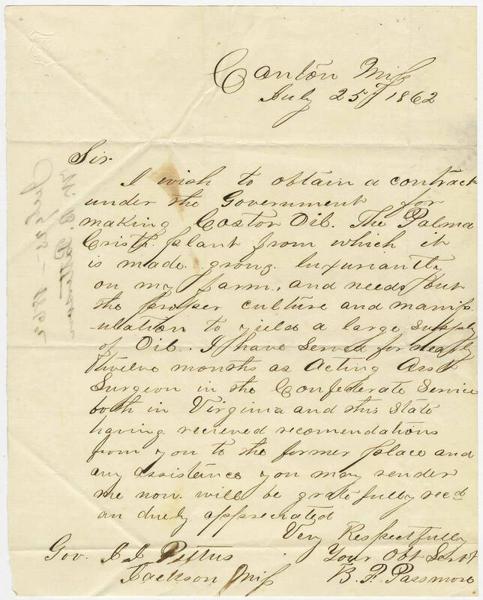 Canton Miss
July 25th 1862
Sir
I wish to obtain a contract
under the Government for
making Castor Oil. The Palma
Cristi plant from which it
is made grows luxuriantly
on my farm, and needs but
the proper culture and manip
ulation to yield a large supply
of Oil. I have served for nearly
twelve months as Acting Asst
Surgeon in the Confederate Service
both in Virginia and this State
having recieved recomendations
from you to the former place and
any assistance you may render
me now will be gratefully recd
an duely appreciated
Very Respectfully
Gov. J J Pettus Your Obt Servt
Jackson Miss B. F. Passmore
1862